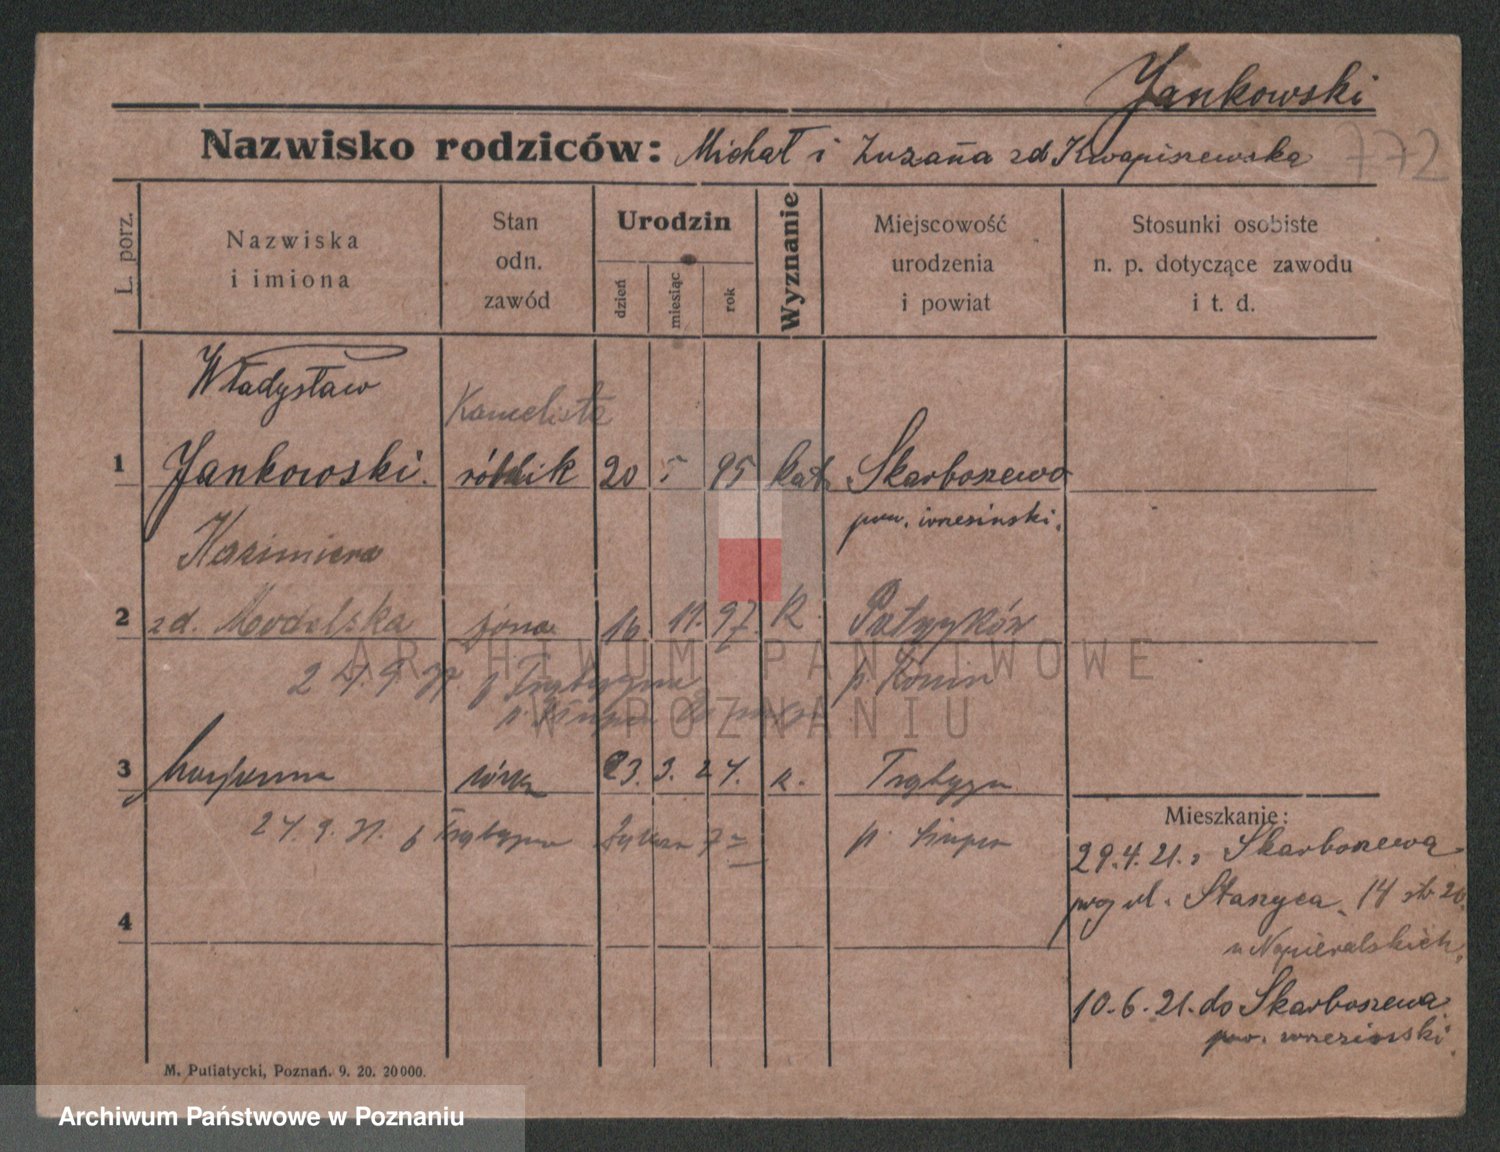 Jankowski
Nazwisko rodziców: Michał i Zuzańa zd Kwapiszewska 772
L. porz.
Nazwiska
i imiona
Stan
odn.
zawód
Urodzin
dzień
miesiąc
rok
Wyznanie
Miejscowość
urodzenia
i powiat
Stosunki osobiste
n. p. dotyczące zawodu
i t. d.
Władysław
1 Jankowski. 20 5 95 kat. Skarboszewo
pow. wrzesiński.
Kazimiera
2 zd. Modelska żona 16 11. 97. K.
p. Konin
3 córka 23. 3. 24. k.
24. 9. 31.
4
Mieszkanie:
29.4.21. z Skarboszewa
ul. Staszyca 14
u Napieralskich,
10.6.21. do Skarboszewa
pow. wrzesiński.
M. Putiatycki, Poznań. 9. 20. 20000.
ARCHIWUM PAŃSTWOWE
W POZNANIU
Archiwum Państwowe w Poznaniu